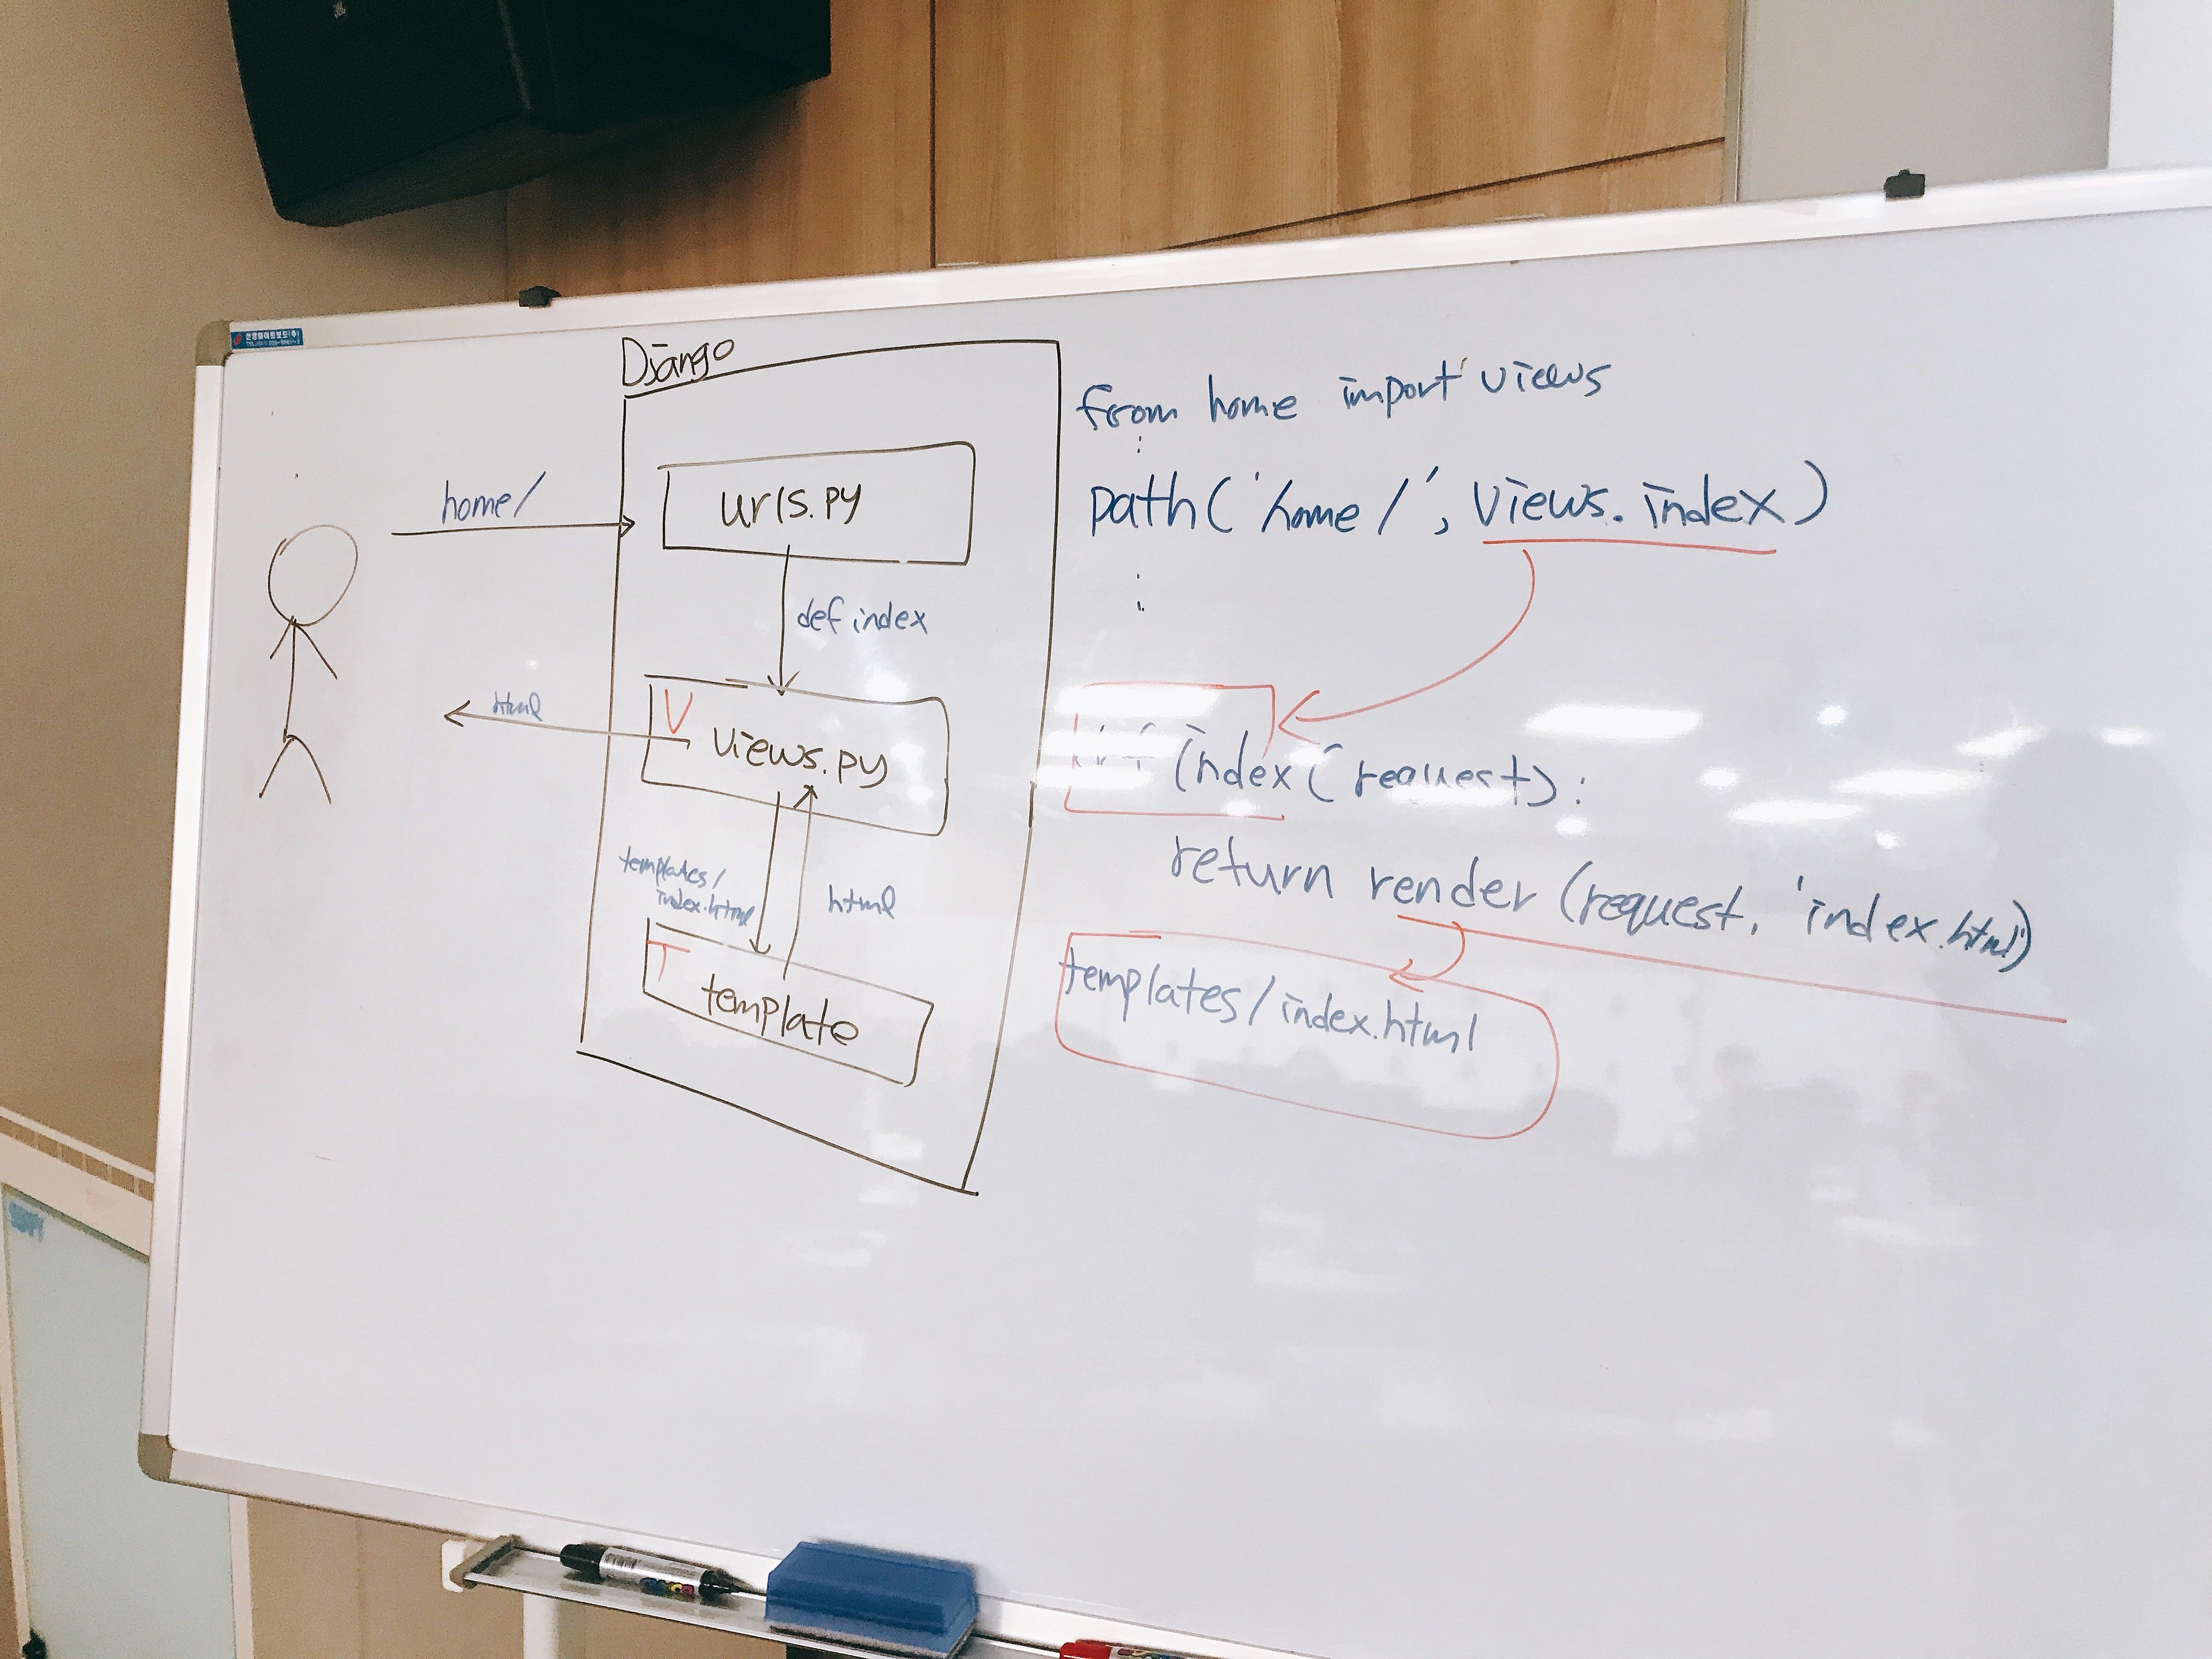 Django
home/
urls.py
def index
html
V
views.py
templates/
index.html
html
T
template
from home import views
:
path('home/', views.index)
:
index(request):
return render(request, 'index.html')
templates/index.html